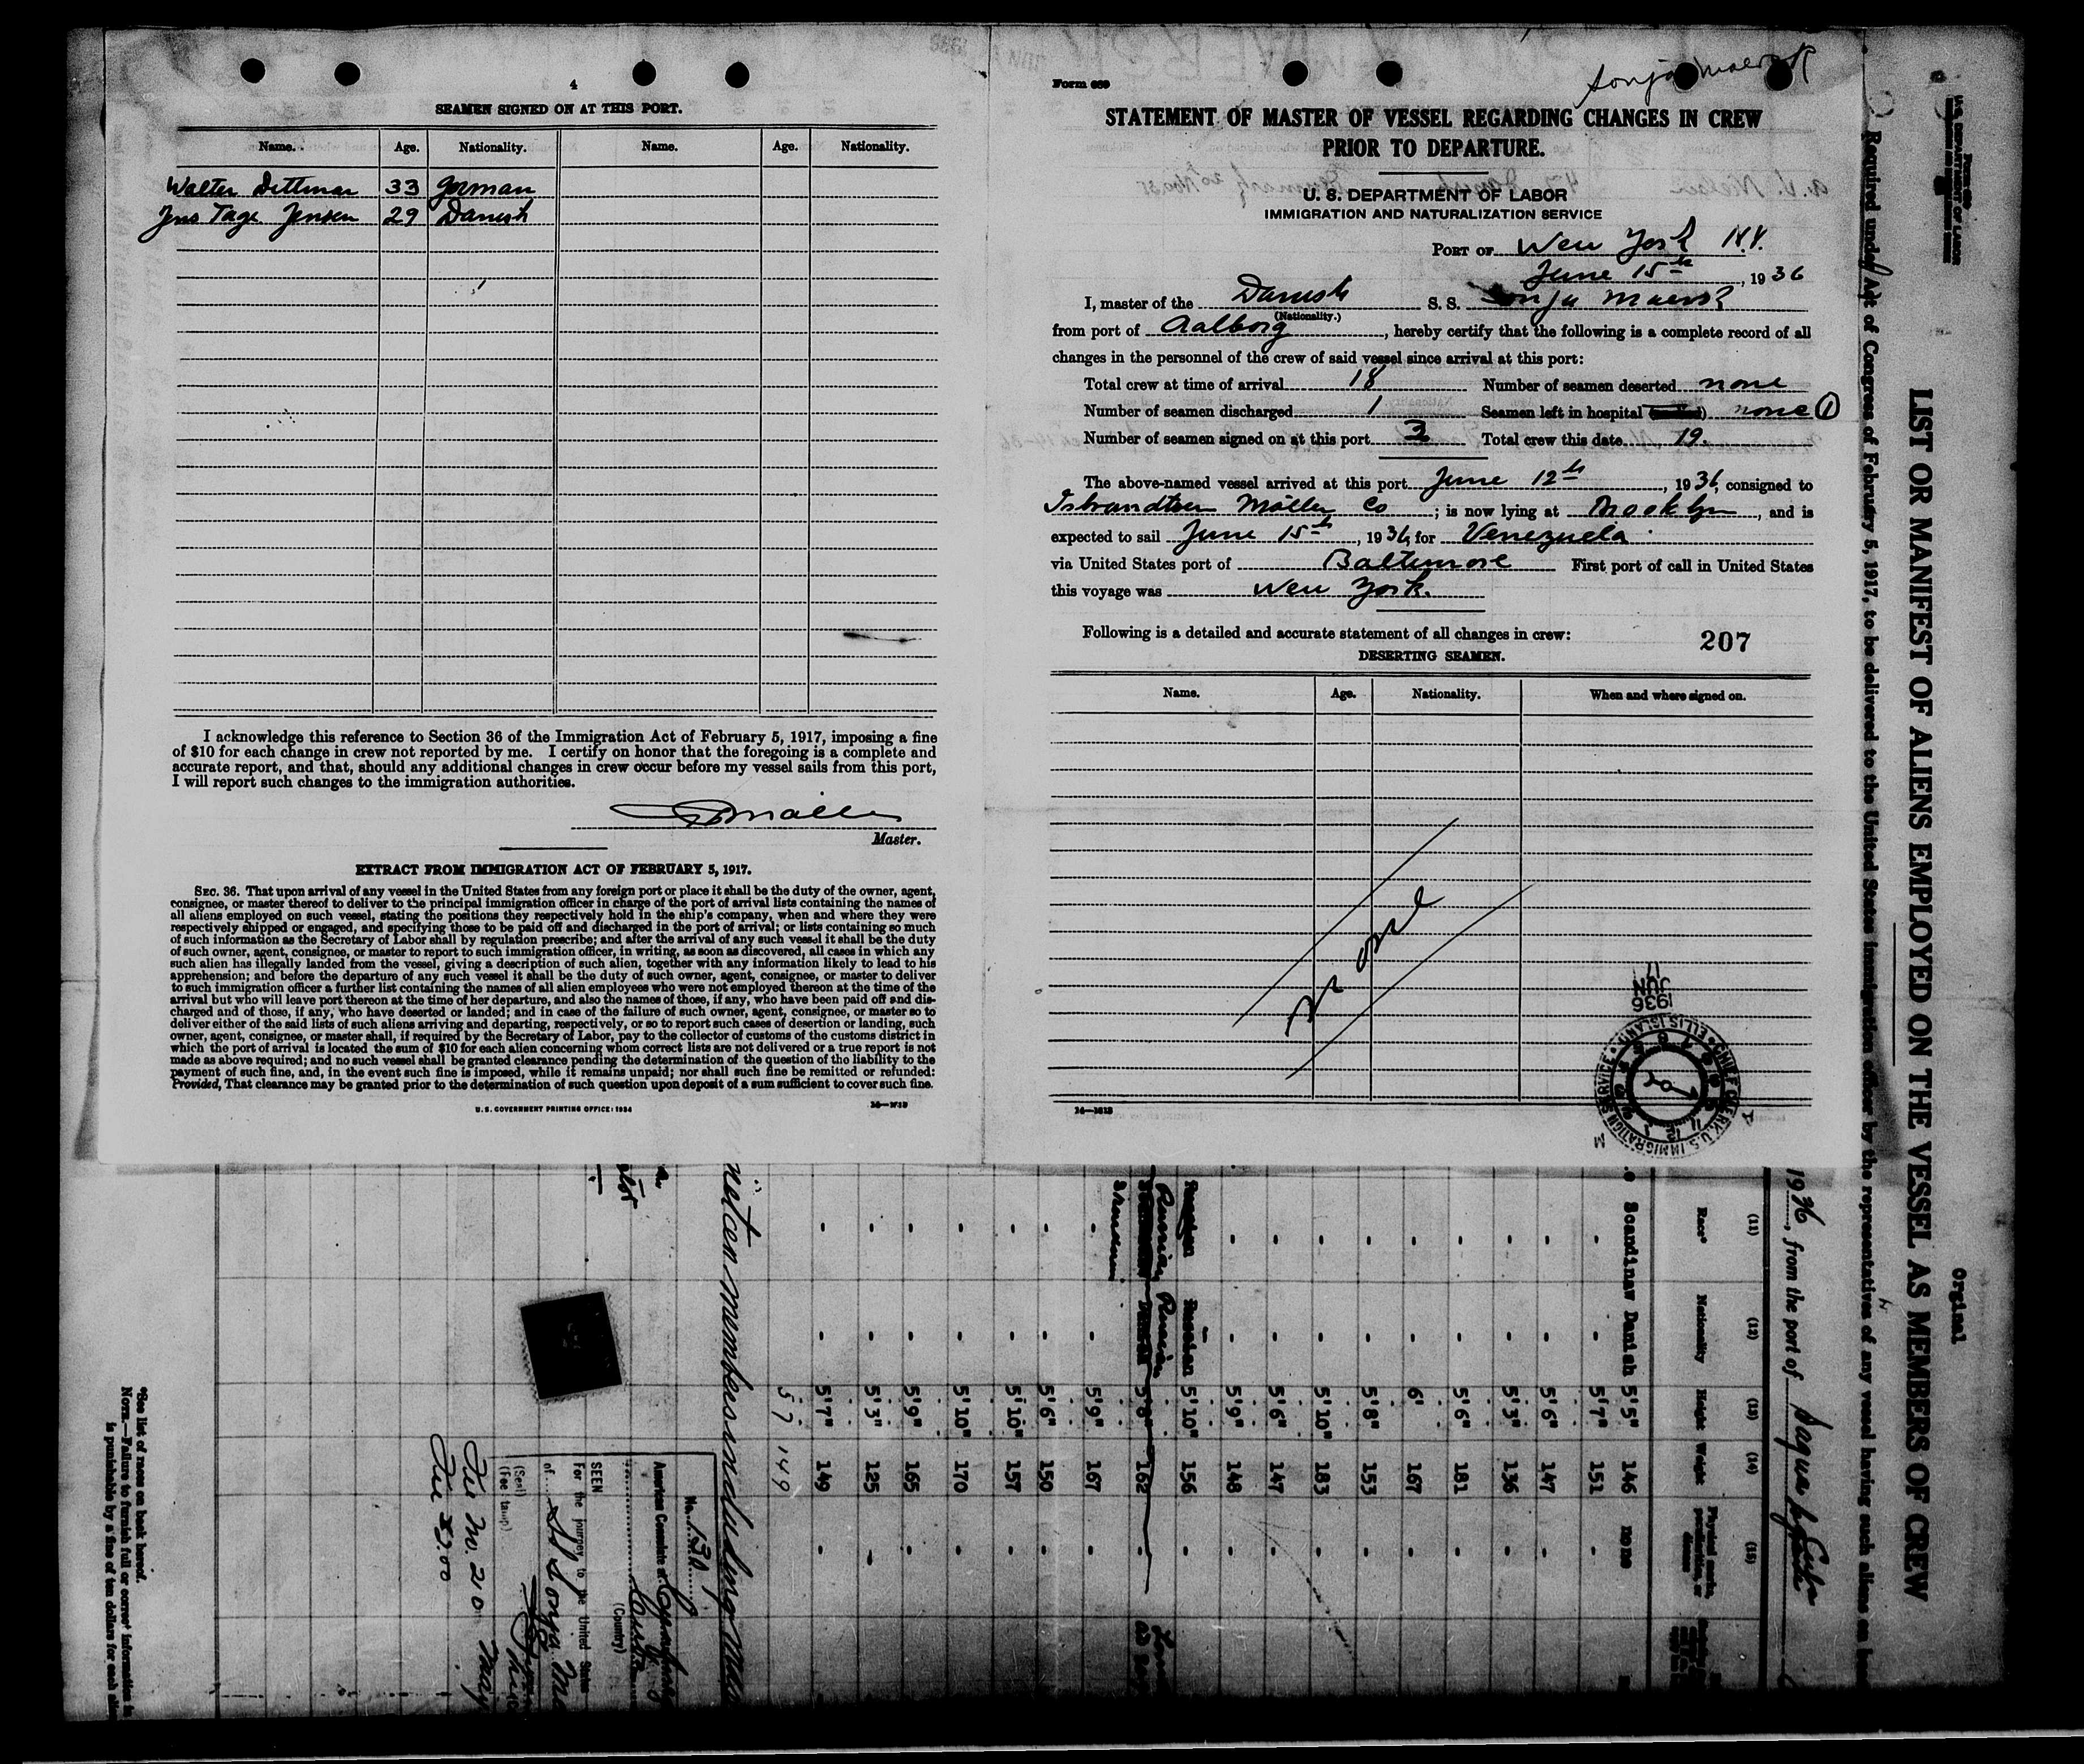 4
SEAMEN SIGNED ON AT THIS PORT.
Name. Age. Nationality. Name. Age. Nationality.
Walter Dittman 33 German
Jens Tage Jensen 29 Danish
I acknowledge this reference to Section 36 of the Immigration Act of February 5, 1917, imposing a fine
of $10 for each change in crew not reported by me. I certify on honor that the foregoing is a complete and
accurate report, and that, should any additional changes in crew occur before my vessel sails from this port,
I will report such changes to the immigration authorities.
Master.
EXTRACT FROM IMMIGRATION ACT OF FEBRUARY 5, 1917.
SEC. 36. That upon arrival of any vessel in the United States from any foreign port or place it shall be the duty of the owner, agent,
consignee, or master thereof to deliver to the principal immigration officer in charge of the port of arrival lists containing the names of
all aliens employed on such vessel, stating the positions they respectively hold in the ship's company, when and where they were
respectively shipped or engaged, and specifying those to be paid off and discharged in the port of arrival; or lists containing so much
of such information as the Secretary of Labor shall by regulation prescribe; and after the arrival of any such vessel it shall be the duty
of such owner, agent, consignee, or master to report to such immigration officer, in writing, as soon as discovered, all cases in which any
such alien has illegally landed from the vessel, giving a description of such alien, together with any information likely to lead to his
apprehension; and before the departure of any such vessel it shall be the duty of such owner, agent, consignee, or master to deliver
to such immigration officer a further list containing the names of all alien employees who were not employed thereon at the time of the
arrival but who will leave port thereon at the time of her departure, and also the names of those, if any, who have been paid off and dis-
charged and of those, if any, who have deserted or landed; and in case of the failure of such owner, agent, consignee, or master so to
deliver either of the said lists of such aliens arriving and departing, respectively, or so to report such cases of desertion or landing, such
owner, agent, consignee, or master shall, if required by the Secretary of Labor, pay to the collector of customs of the customs district in
which the port of arrival is located the sum of $10 for each alien concerning whom correct lists are not delivered or a true report is not
made as above required; and no such vessel shall be granted clearance pending the determination of the question of the liability to the
payment of such fine, and, in the event such fine is imposed, while it remains unpaid; nor shall such fine be remitted or refunded:
Provided, That clearance may be granted prior to the determination of such question upon deposit of a sum sufficient to cover such fine.
U. S. GOVERNMENT PRINTING OFFICE: 1934
Form 689
Sonja Maersk
STATEMENT OF MASTER OF VESSEL REGARDING CHANGES IN CREW
PRIOR TO DEPARTURE.
U. S. DEPARTMENT OF LABOR
IMMIGRATION AND NATURALIZATION SERVICE
PORT OF New York N.Y.
June 15th, 1936
I, master of the Danish S. S. Sonja Maersk
(Nationality.)
from port of Aalborg, hereby certify that the following is a complete record of all
changes in the personnel of the crew of said vessel since arrival at this port:
Total crew at time of arrival 18 Number of seamen deserted none
Number of seamen discharged 1 Seamen left in hospital none 1
Number of seamen signed on at this port Total crew this date 19.
The above-named vessel arrived at this port June 12th, 1936, consigned to
Isbrandtsen Möller Co; is now lying at Brooklyn, and is
expected to sail June 15th, 1936, for Venezuela
via United States port of Baltimore First port of call in United States
this voyage was New York.
Following is a detailed and accurate statement of all changes in crew: 207
DESERTING SEAMEN.
Name. Age. Nationality. When and where signed on.
None
1936
JUN
17
CHIEF CLERK, U.S. IMMIGRATION SERVICE • ELLIS ISLAND
Orginal
LIST OR MANIFEST OF ALIENS EMPLOYED ON THE VESSEL AS MEMBERS OF CREW
Required under Act of Congress of February 5, 1917, to be delivered to the United States immigration officer by the representatives of any vessel having such aliens on
1936, from the port of Sagua Cuba
(11) (12) (13) (14) (15)
Race* Nationality Height Weight
Scandinaw Danish 5'5" 146 none
5'7" 151
5'6" 147
5'3" 136
5'6" 181
6' 167
5'8" 153
5'10" 183
5'6" 147
5'9" 148
Russian Russian 5'10" 156
5'8" 162
5'9" 167
5'6" 150
5'10" 157
5'10" 170
5'9" 165
5'3" 125
5'7" 149
5 7 149
members including
American Consulate at
Cuba
(Country)
SEEN
For the journey to the United States
of SS Sonja
(Seal)
(Fee stamp)
*See list of races on back hereof.
NOTE.—Failure to furnish full or correct information in
is punishable by a fine of ten dollars for each alien